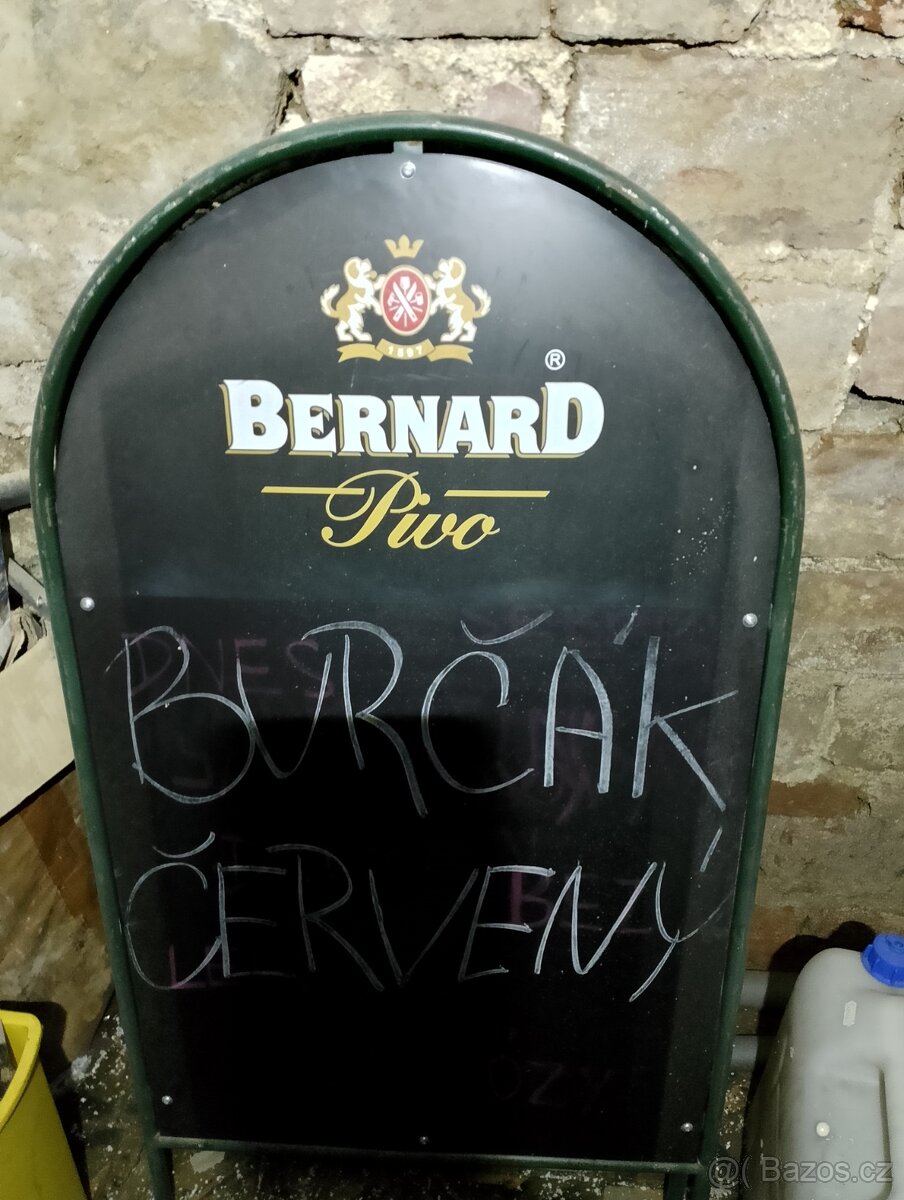 1597
®
BERNARD
Pivo
DNES
BURČÁK
ČERVENÝ
BEZ
@( Bazos.cz